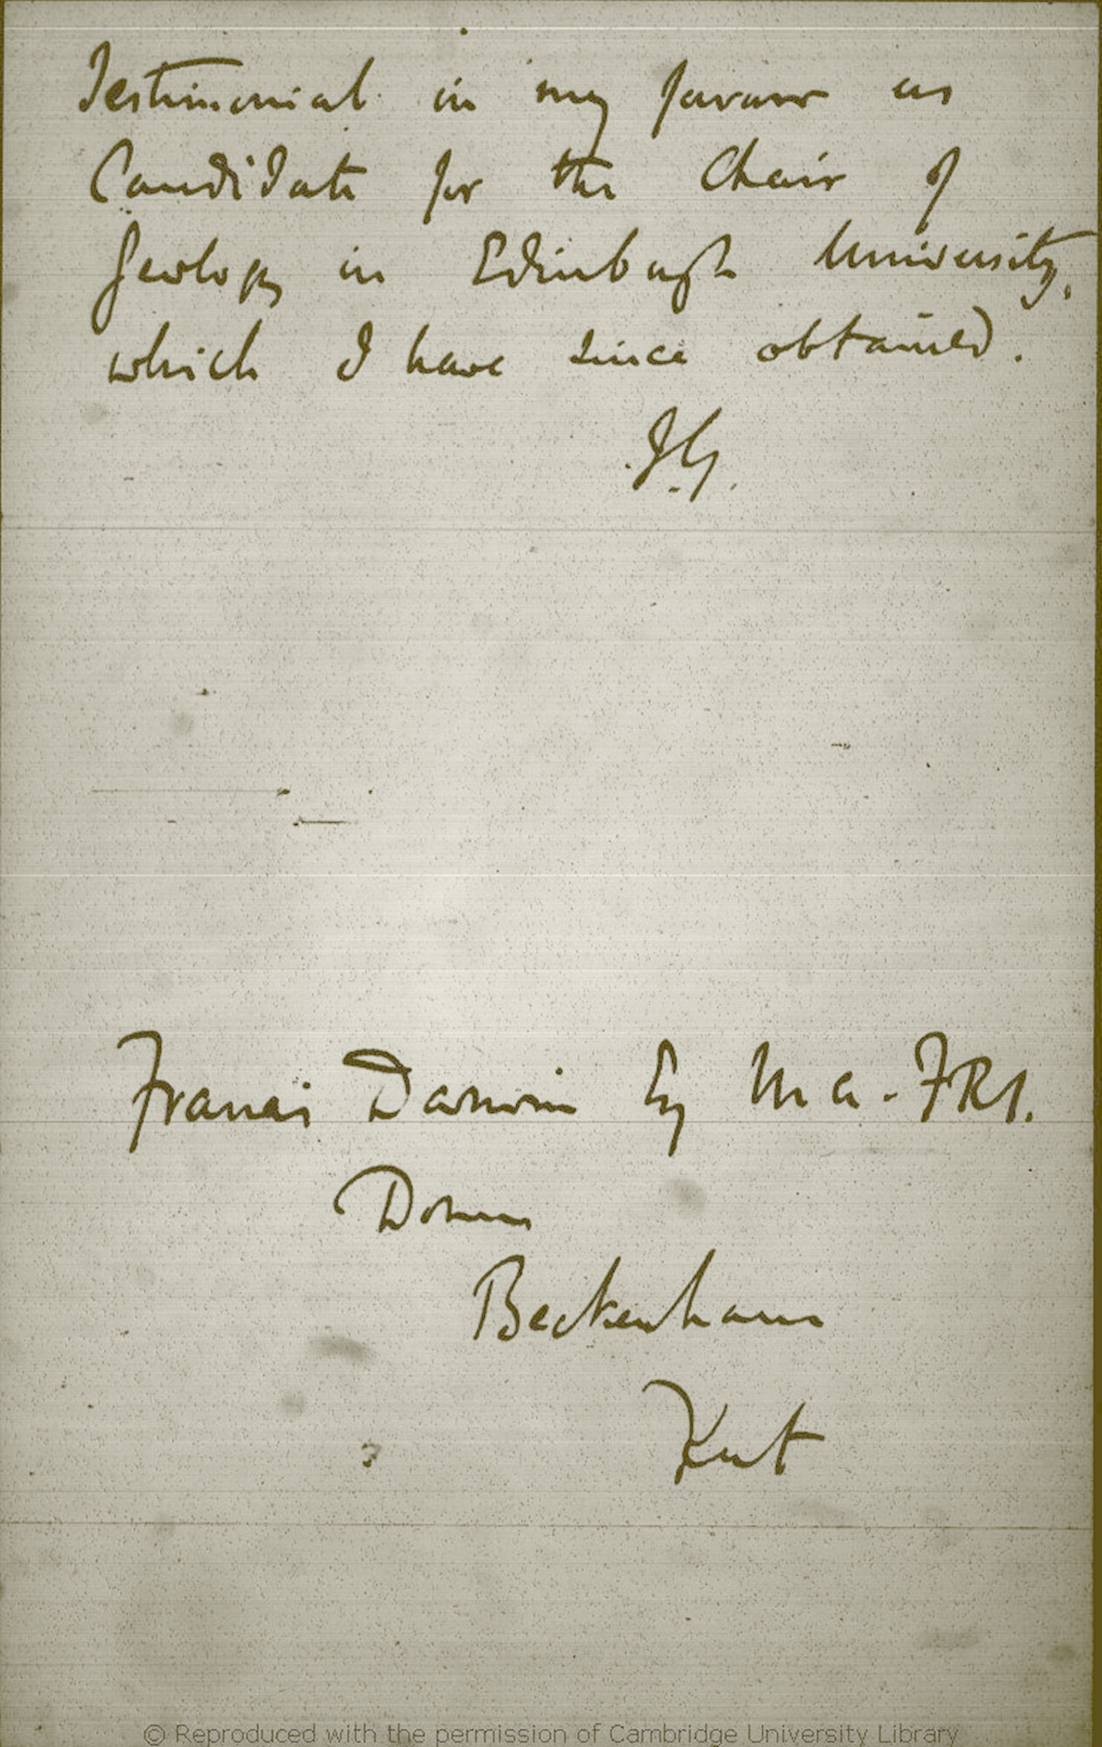 Testimonial in my favour as
Candidate for the Chair of
Geology in Edinburgh University,
which I have since obtained.
J.G.
Francis Darwin Esq M A. FRS.
Down
Beckenham
Kent
© Reproduced with the permission of Cambridge University Library